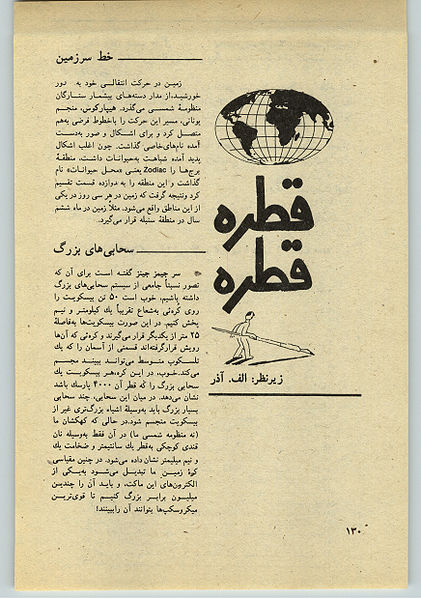 خط سرزمین
زمین در حرکت انتقالی خود به دور
خورشید، از مدار دسته‌های بیشمار ستارگان
منظومهٔ شمسی می‌گذرد. هیپارکوس، منجم
یونانی، مسیر این حرکت را باخطوط فرضی به‌هم
متصل کرد و برای اشکال و صور به‌دست
آمده نام‌های‌خاصی گذاشت. چون اغلب اشکال
پدید آمده شباهت به‌حیوانات داشت، منطقهٔ
برج‌ها را Zodiac یعنی «محل حیوانات» نام
گذاشت و این منطقه را به دوازده قسمت تقسیم
کرد ونتیجه گرفت که زمین در هر سی روز در یکی
از این مناطق واقع می‌شود. مثلاً زمین در ماه ششم
سال در منطقهٔ سنبله قرار می‌گیرد.
سحابی‌های بزرگ
سر جیمز جینز گفته است برای آن که
تصور نسبتاً جامعی از سیستم سحابی‌های بزرگ
داشته باشیم، خوب است ۵۰ تن بیسکویت را
روی کره‌ئی به‌شعاع تقریباً یك کیلومتر و نیم
پخش کنیم. در این صورت بیسکویت‌ها به‌فاصلهٔ
۲۵ متر از یکدیگر قرار می‌گیرند و کره‌ئی که آن‌ها
رویش قرارگرفته‌اند قسمتی از آسمان را که یك
تلسکوپ متوسط می‌تواند ببیند مجسم
می‌کند. خوب، در این کره، هر بیسکویت یك
سحابی بزرگ را که قطر آن ۴۰۰۰ پارسك باشد
نشان می‌دهد. در میان این سحابی، چند سحابی
بسیار بزرگ باید به‌وسیلهٔ اشیاء بزرگ‌تری غیر از
بیسکویت منجسم شود. در حالی که کهکشان ما
(نه منظومه شمسی ما) در آن فقط به‌وسیله نان
قندی کوچکی به‌قطر یك سانتیمتر و ضخامت یك
و نیم میلیمتر نشان داده می‌شود. در چنین مقیاسی
کرهٔ زمین ما تبدیل می‌شود به‌یکی از
الکترون‌های این ماکت، و باید آن را چندین
میلیون برابر بزرگ کنیم تا قوی‌ترین
میکروسکپ‌ها بتوانند آن راببینند!
قطره
قطره
زیرنظر: الف. آذر
۱۳۰